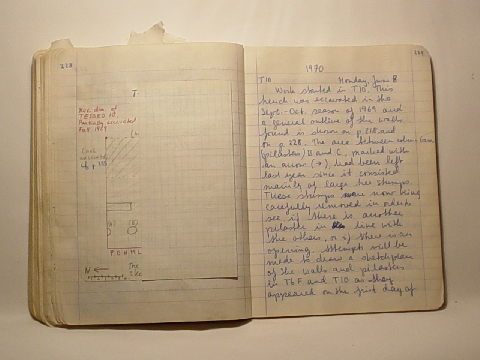 218
T
(C)
(A)
(B)
P O H M L
N
The
219
1970
T10 Monday, June 8
Work started in T10. This
trench was excavated in the
Sept.-Oct. season of 1969 and
a general outline of the walls
found is shown on p. 218 and
on p. 228. The area between columns
(pilasters) B and C, marked with
an arrow (→), had been left
last year since it consisted
mainly of large tree stumps.
These stumps were now being
carefully removed in order to
see if there is another
pilaster in line with
the others, or if there is an
opening. Attempts will be
made to draw a sketch plan
of the walls and pilasters
in T6F and T10 as they
appeared on the first day of